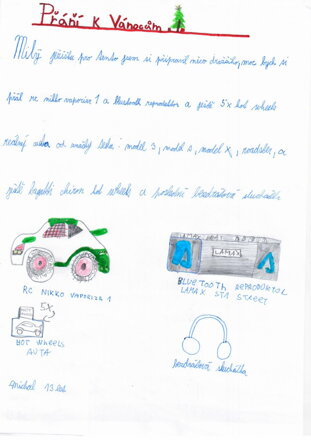 Přání k Vánocům
Milý ježíšku pro tento jsem si připravil něco dražšího, moc bych si
přál rc nikko vaporize 1 a bluetooth reproduktor a ještě 5x hot wheels
od značky tesla: model 3, model s, model x, roadster, a
ještě bugatti chiron hot wheels a poslední bezdrátová sluchátka
LAMAX
LAMAX
RC NIKKO VAPORIZE 1
BLUETOOTH REPRODUKTOR
LAMAX ST1 STREET
5x
HOT WHEELS
AUTA
bezdrátová sluchátka
Michal 13 let